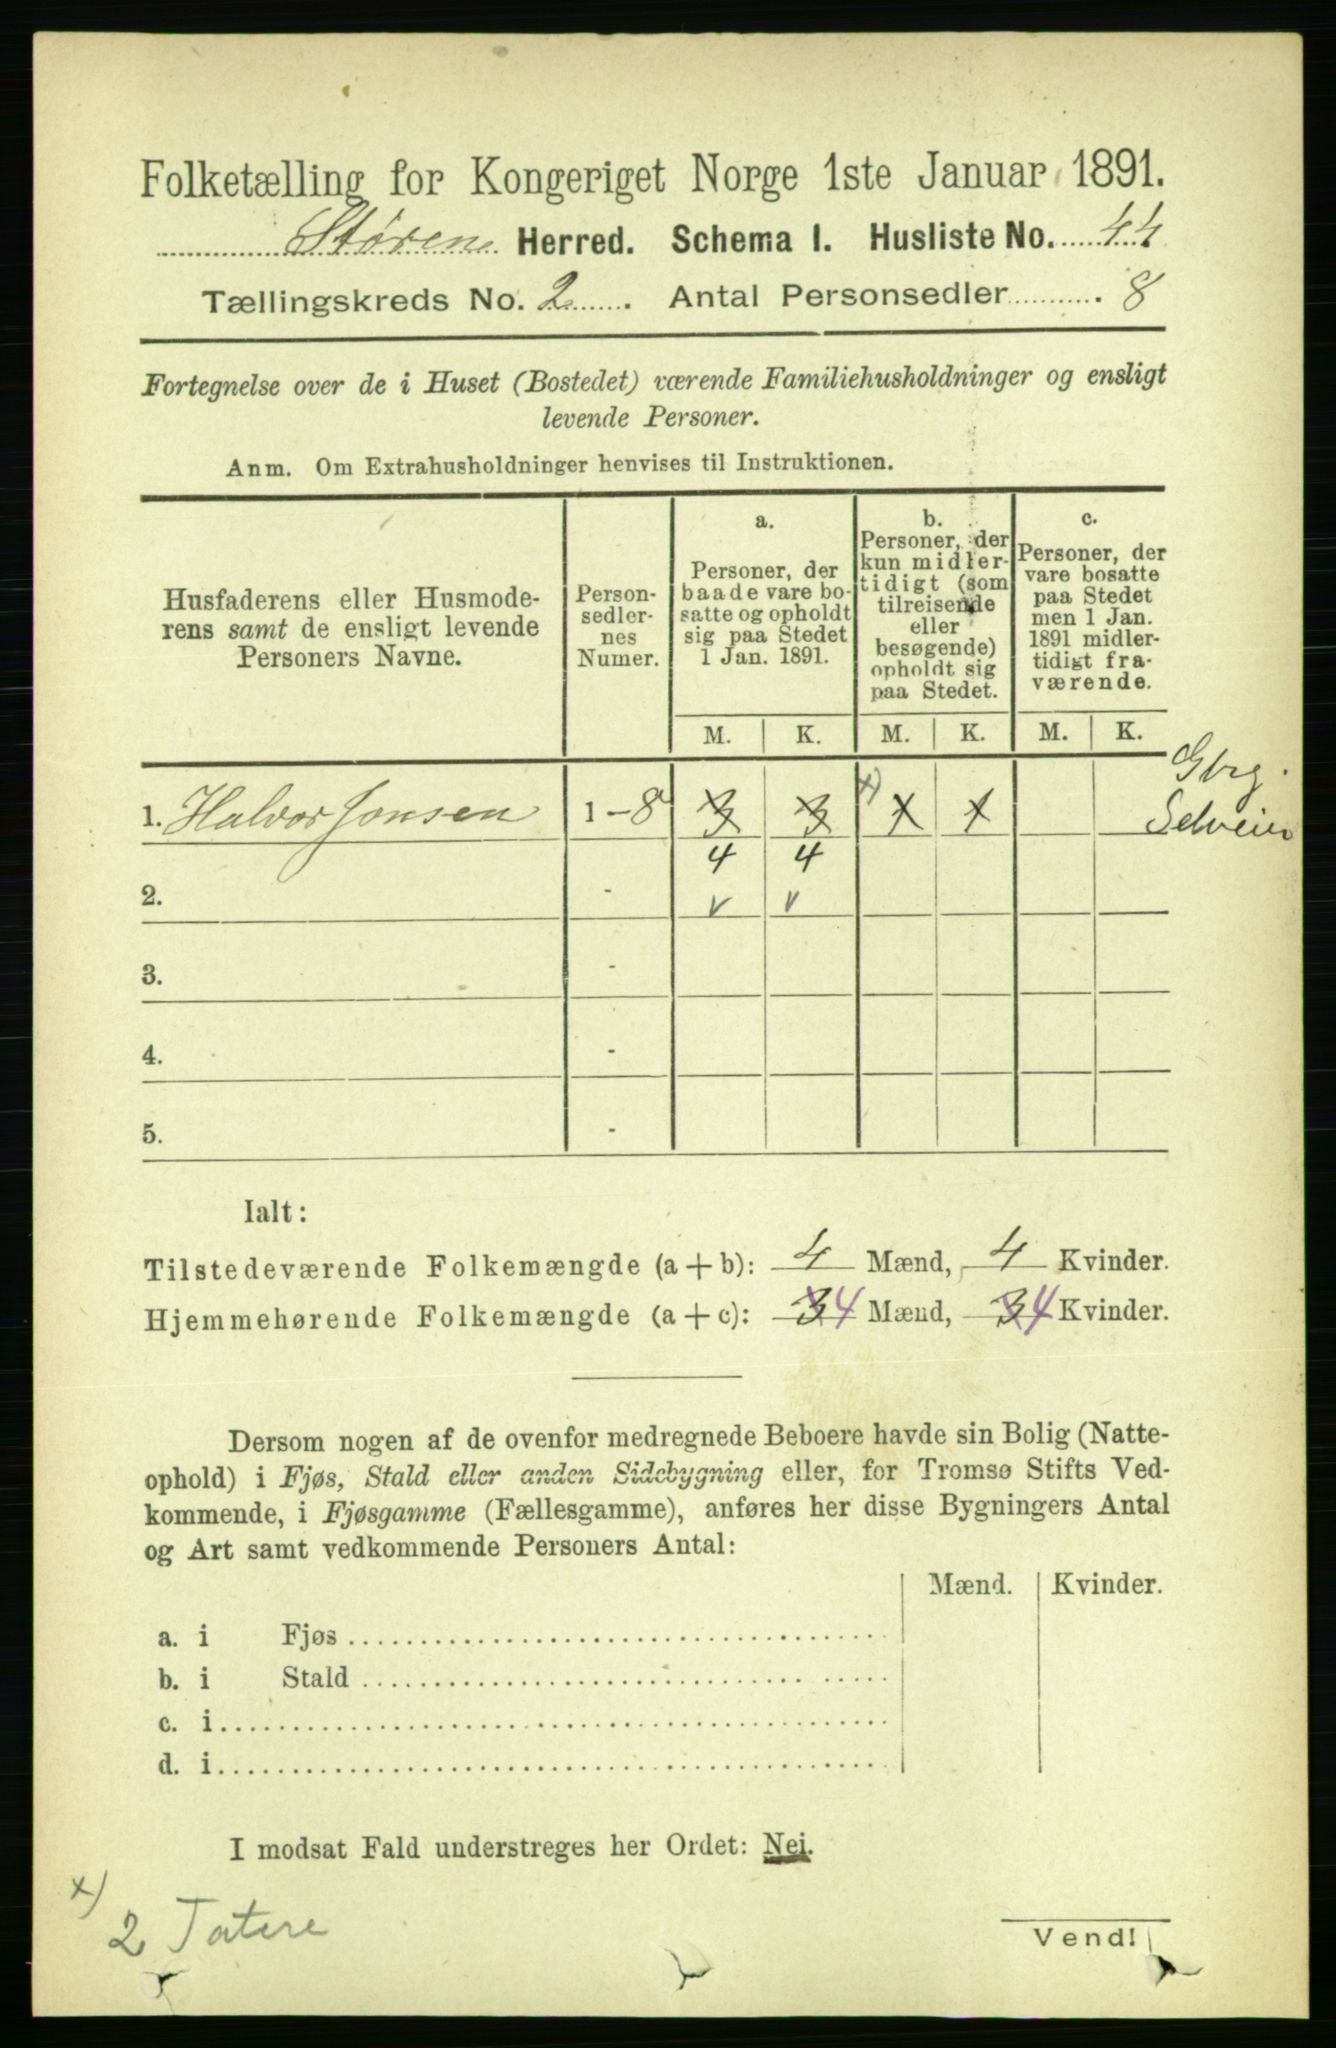 Folketælling for Kongeriget Norge 1ste Januar 1891.
Støren Herred. Schema I. Husliste No. 44
Tællingskreds No. 2 . Antal Personsedler . 8
Fortegnelse over de i Huset (Bostedet) værende Familiehusholdninger og ensligt
levende Personer.
Anm. Om Extrahusholdninger henvises til Instruktionen.
Husfaderens eller Husmode-
rens samt de ensligt levende
Personers Navne.
Person-
sedler-
nes
Numer.
a.
Personer, der
baade vare bo-
satte og opholdt
sig paa Stedet
1 Jan. 1891.
b.
Personer, der
kun midler-
tidigt (som
tilreisende
eller
besøgende)
opholdt sig
paa Stedet.
c.
Personer, der
vare bosatte
paa Stedet
men 1 Jan.
1891 midler-
tidigt fra-
værende.
M. K. M. K. M. K.
Gbrg.
Selveier
1. Halvor Jonsen 1-8 3 3 x) 1 1
4 4
2. - v v
3. -
4. -
5. -
Ialt:
Tilstedeværende Folkemængde (a + b): 4 Mænd, 4 Kvinder.
Hjemmehørende Folkemængde (a + c): 3 4 Mænd, 3 4 Kvinder.
Dersom nogen af de ovenfor medregnede Beboere havde sin Bolig (Natte-
ophold) i Fjøs, Stald eller anden Sidebygning eller, for Tromsø Stifts Ved-
kommende, i Fjøsgamme (Fællesgamme), anføres her disse Bygningers Antal
og Art samt vedkommende Personers Antal:
Mænd. Kvinder.
a. i Fjøs
b. i Stald
c. i
d. i
I modsat Fald understreges her Ordet: Nei.
x)
2 Tatere
Vend!